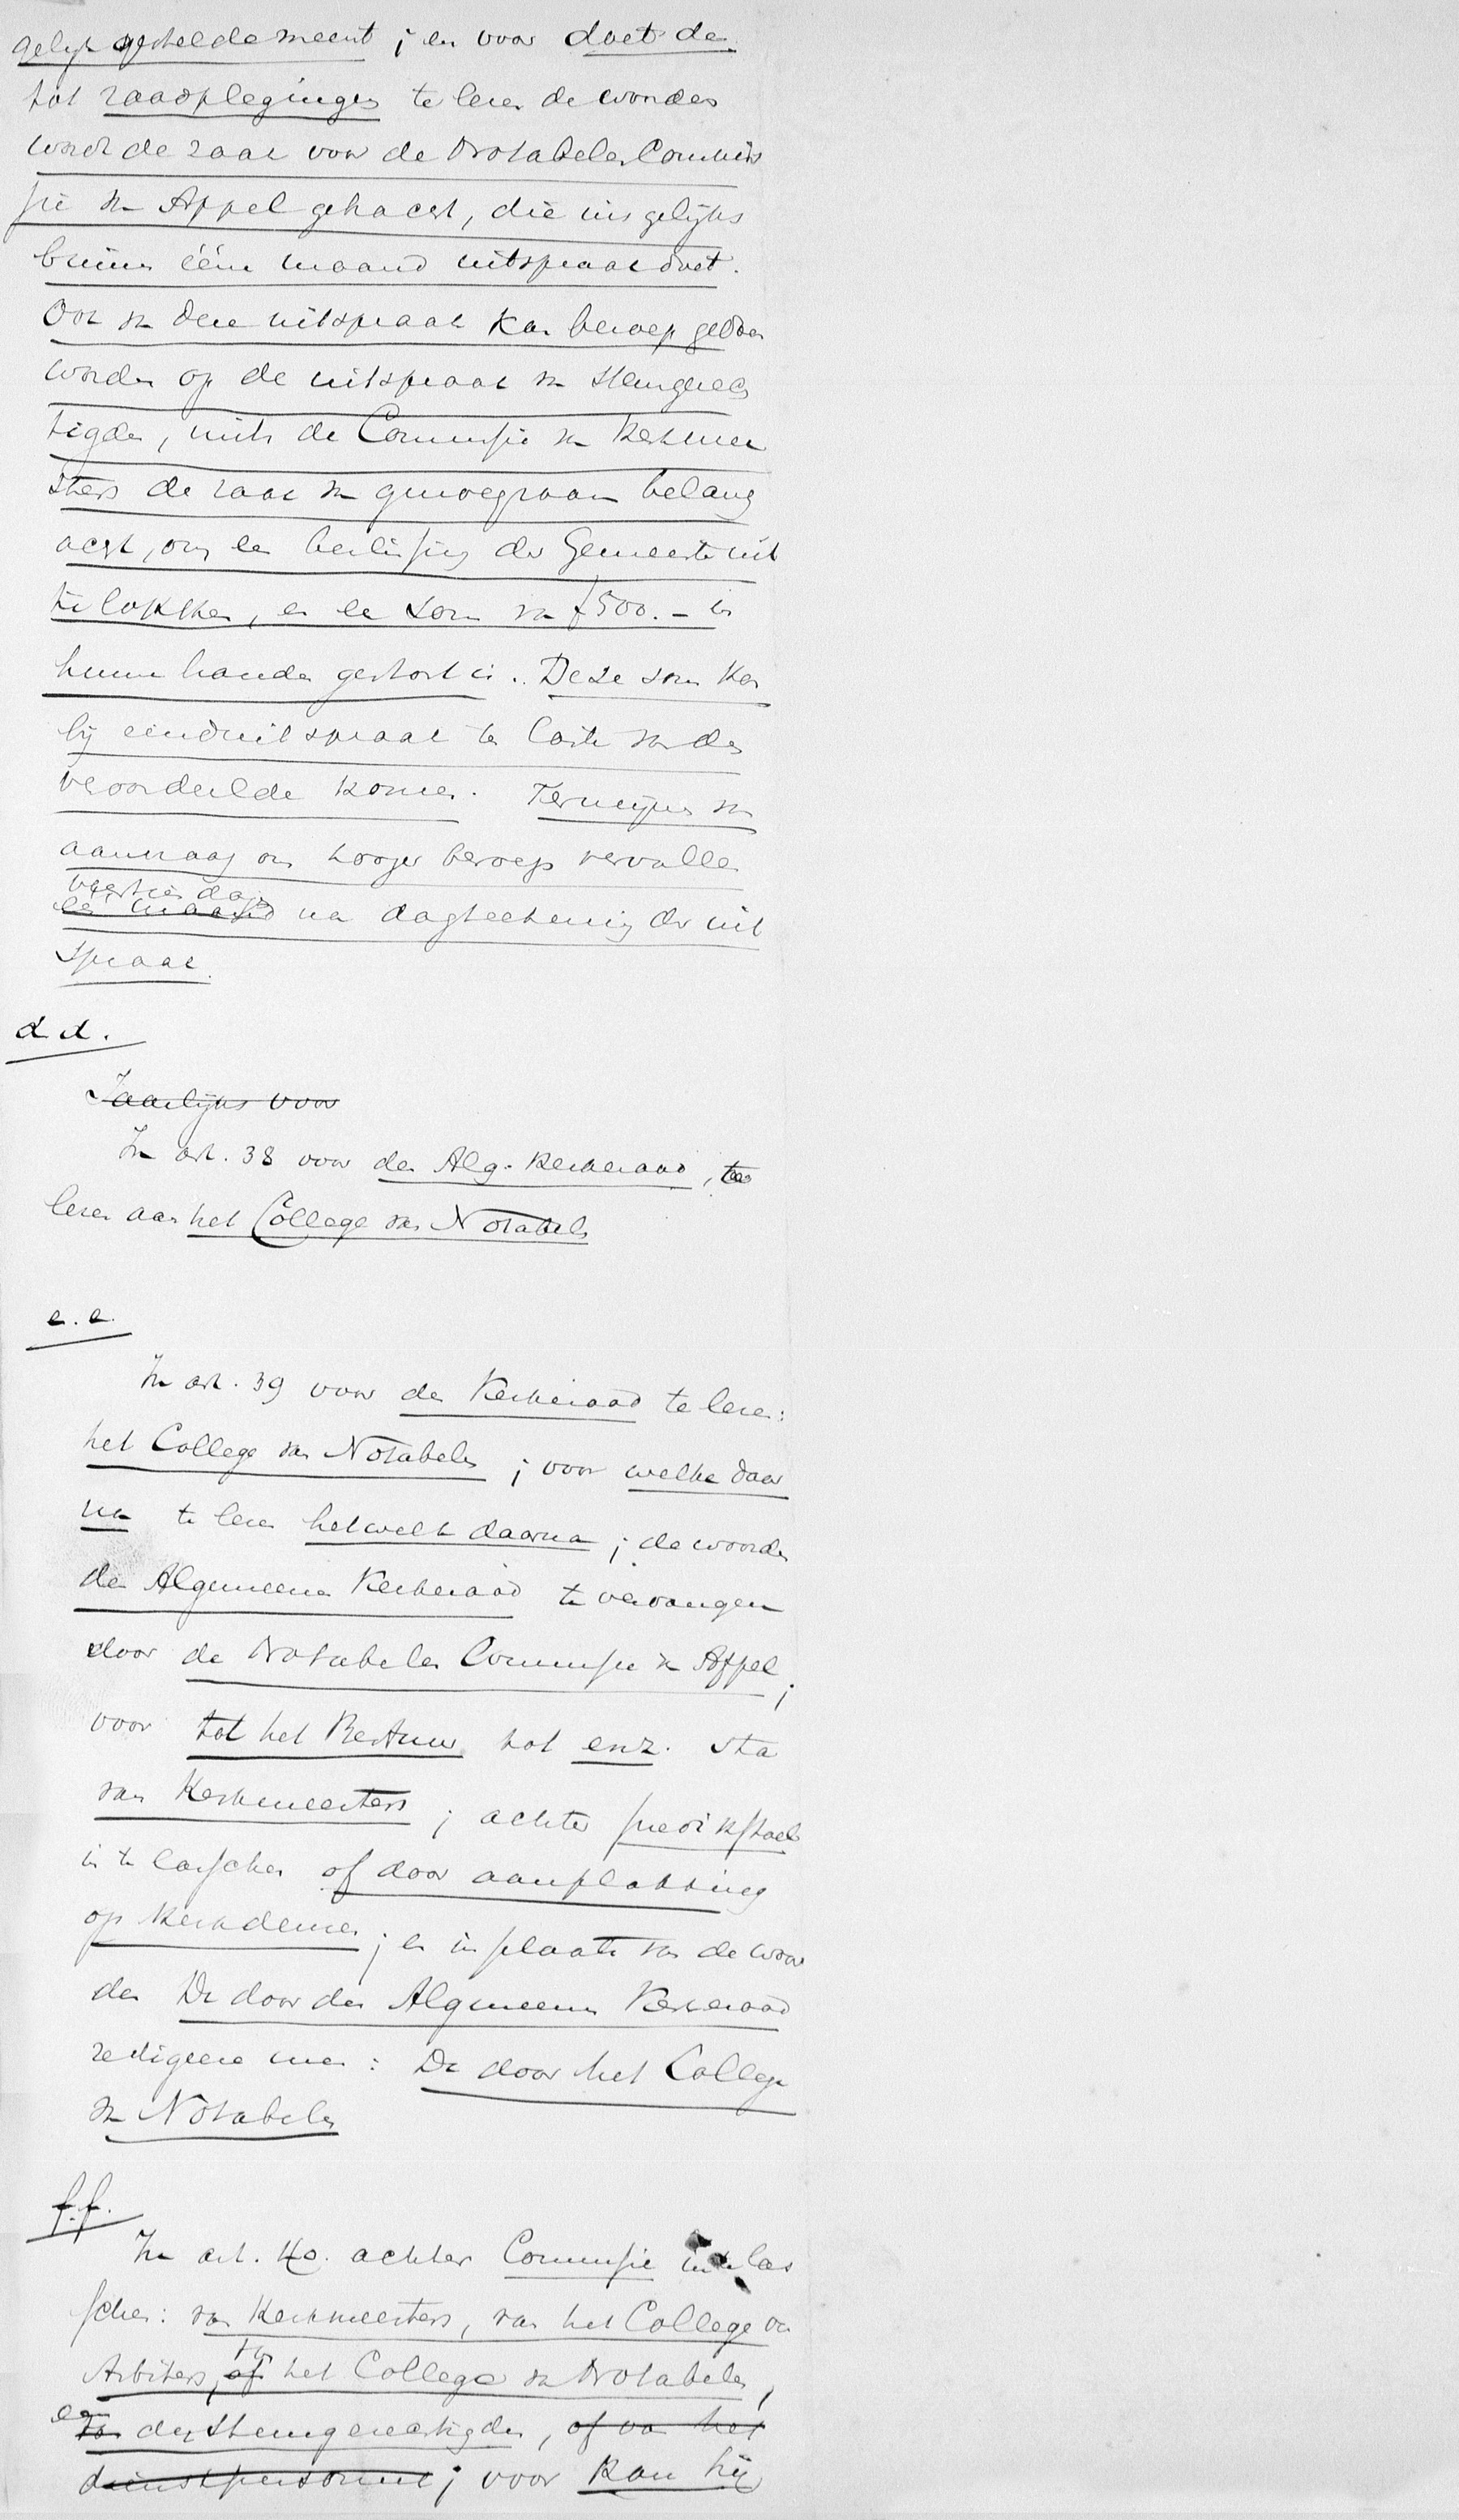 gelijk gestelde meent; en voor doet de
tot raadplegingen te lezen de woorden
wordt de zaak voor de Notabelen Commis
sie van Appel gebracht, die insgelijks
binnen ééne maand uitspraak doet.
Ook van deze uitspraak kan beroep gedaan
worden op de uitspraak van stemgerech
tigden, mits de Commissie van Kerkmee
sters de zaak van genoegzaam belang
acht, om een beslissing der Gemeente uit
te lokken, en een som van f500.- in
hunne handen gestort is. Deze som kan
bij einduitspraak ten laste van den
veroordeelde komen. Termijnen van
aanvraag om hooger beroep vervallen
veertien dagen
een maand na dagteekening der uit
spraak.
d d.
Jaarlijks voor
In art. 38 voor den Alg. Kerkeraad, te
lezen aan het College van Notabelen
e. e.
In art. 39 voor den Kerkeraad te lezen:
het College van Notabelen; voor welke daar
na te lezen hetwelk daarna; de woorden
den Algemeenen Kerkeraad te vervangen
door de Notabelen Commissie van Appel;
voor tot het Bestuur tot enz. sta
van Kerkmeesters; achter predikstoel
in te lasschen of door aanplakking
op kerkdeuren; en in plaats van de woor
den De door den Algemeenen Kerkeraad
redigeere men: De door het College
van Notabelen
f.f.
In art. 40. achter Commissie in te las
schen: van Kerkmeesters, van het College van
Arbiters, of het College van Notabelen,
en
van der Stemgerechtigden, of van het
dienstpersoneel; voor kan hij